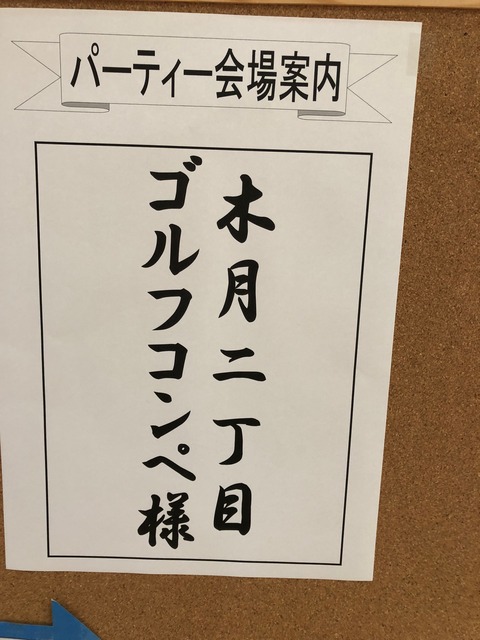 パーティー会場案内
木月二丁目
ゴルフコンペ様